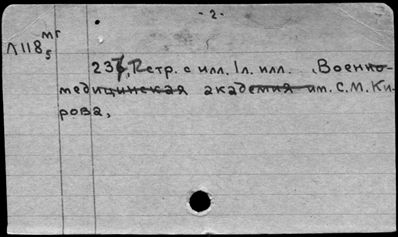 - 2 -
Л118₅ мг
237, [2] стр. с илл. 1 л. илл. (Военно-
медицинская академия им. С.М. Ки-
рова,